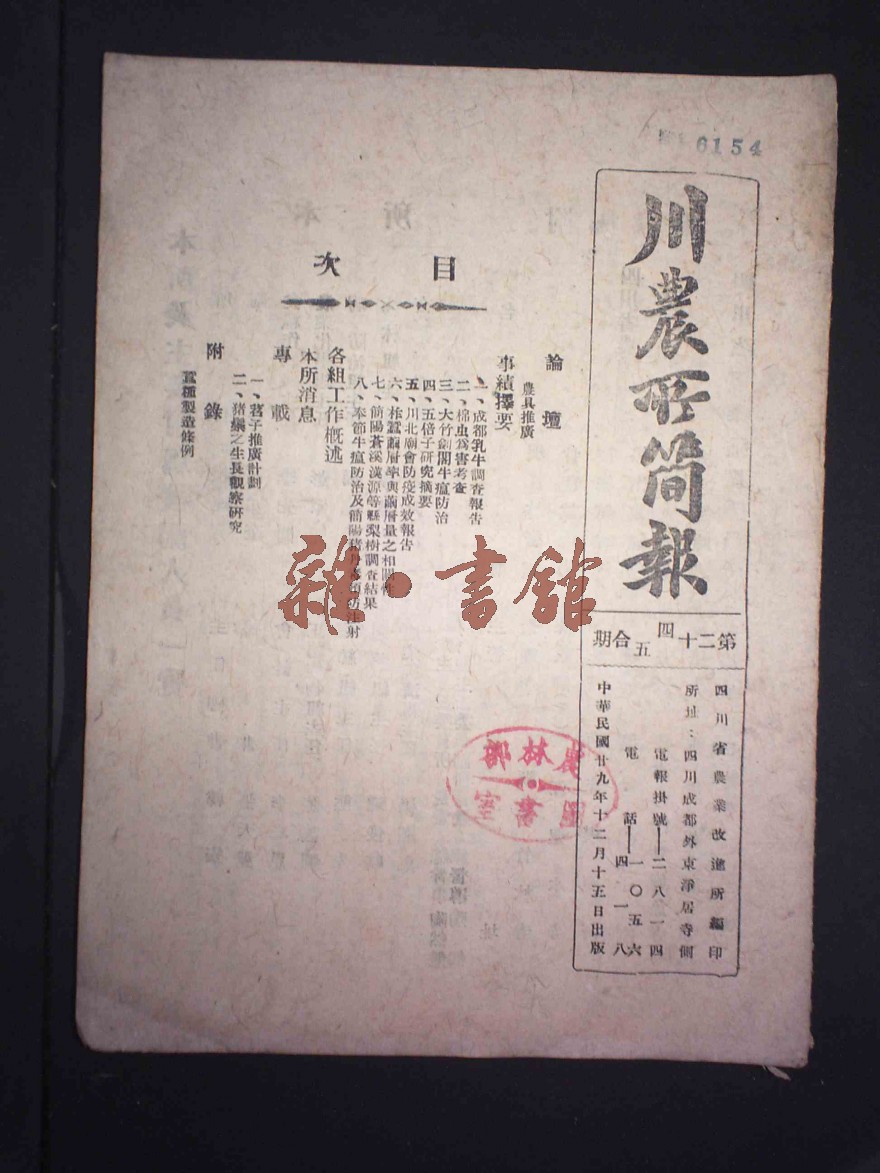 6154
川農所簡報
第二十四五合期
四川省農業改進所編印
所址：四川成都外東淨居寺側
電報掛號——二八二一四
電話——一〇五六
四一八
中華民國廿九年十二月十五日出版
目次
論壇
農具推廣
事績擇要
一、成都乳牛調查報告
二、棉虫爲害考查
三、大竹劍閣牛瘟防治
四、五倍子研究摘要
五、川北廟會防疫成效報告
六、柞蠶繭層率與繭層量之相關性
七、簡陽蒼溪漢源等縣梨樹調查結果
八、奉節牛瘟防治及簡陽猪丹毒預防注射
各組工作概述
本所消息
專載
一、苕子推廣計劃
二、猪鬃之生長觀察研究
附錄
蠶種製造條例
農林部
圖書室
雜·書館